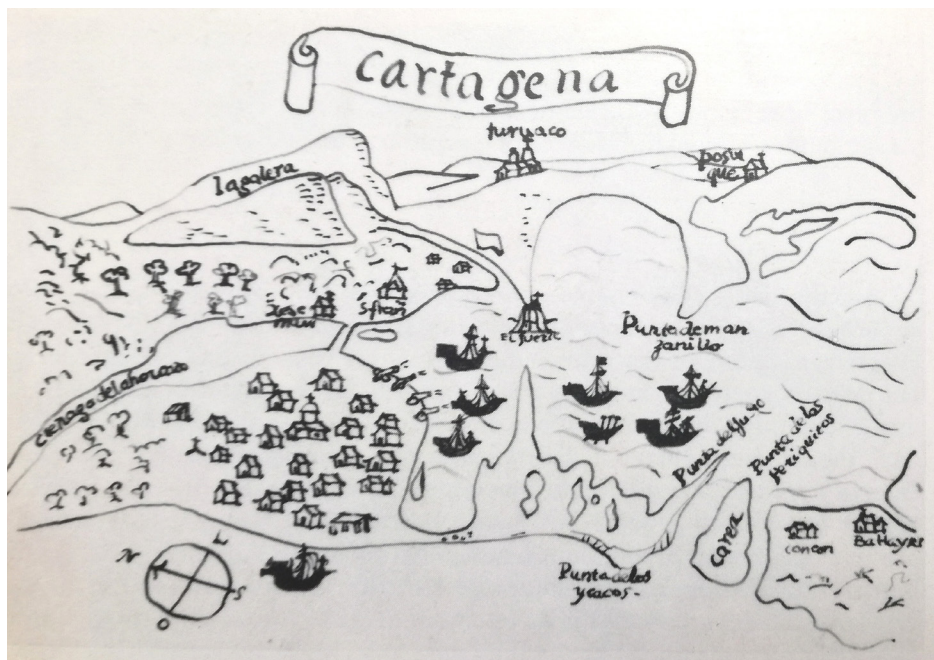 Cartagena
turuaco
posui
que
lagalera
xese
mani
Sfrañ
EL fuerte
Punta deman
zanillo
cienaga del ahorcado
Punta del Judio
Punta de los
periquitos
carex
concon
Bahayre
Punta de los
ycacos-
N
L
S
O